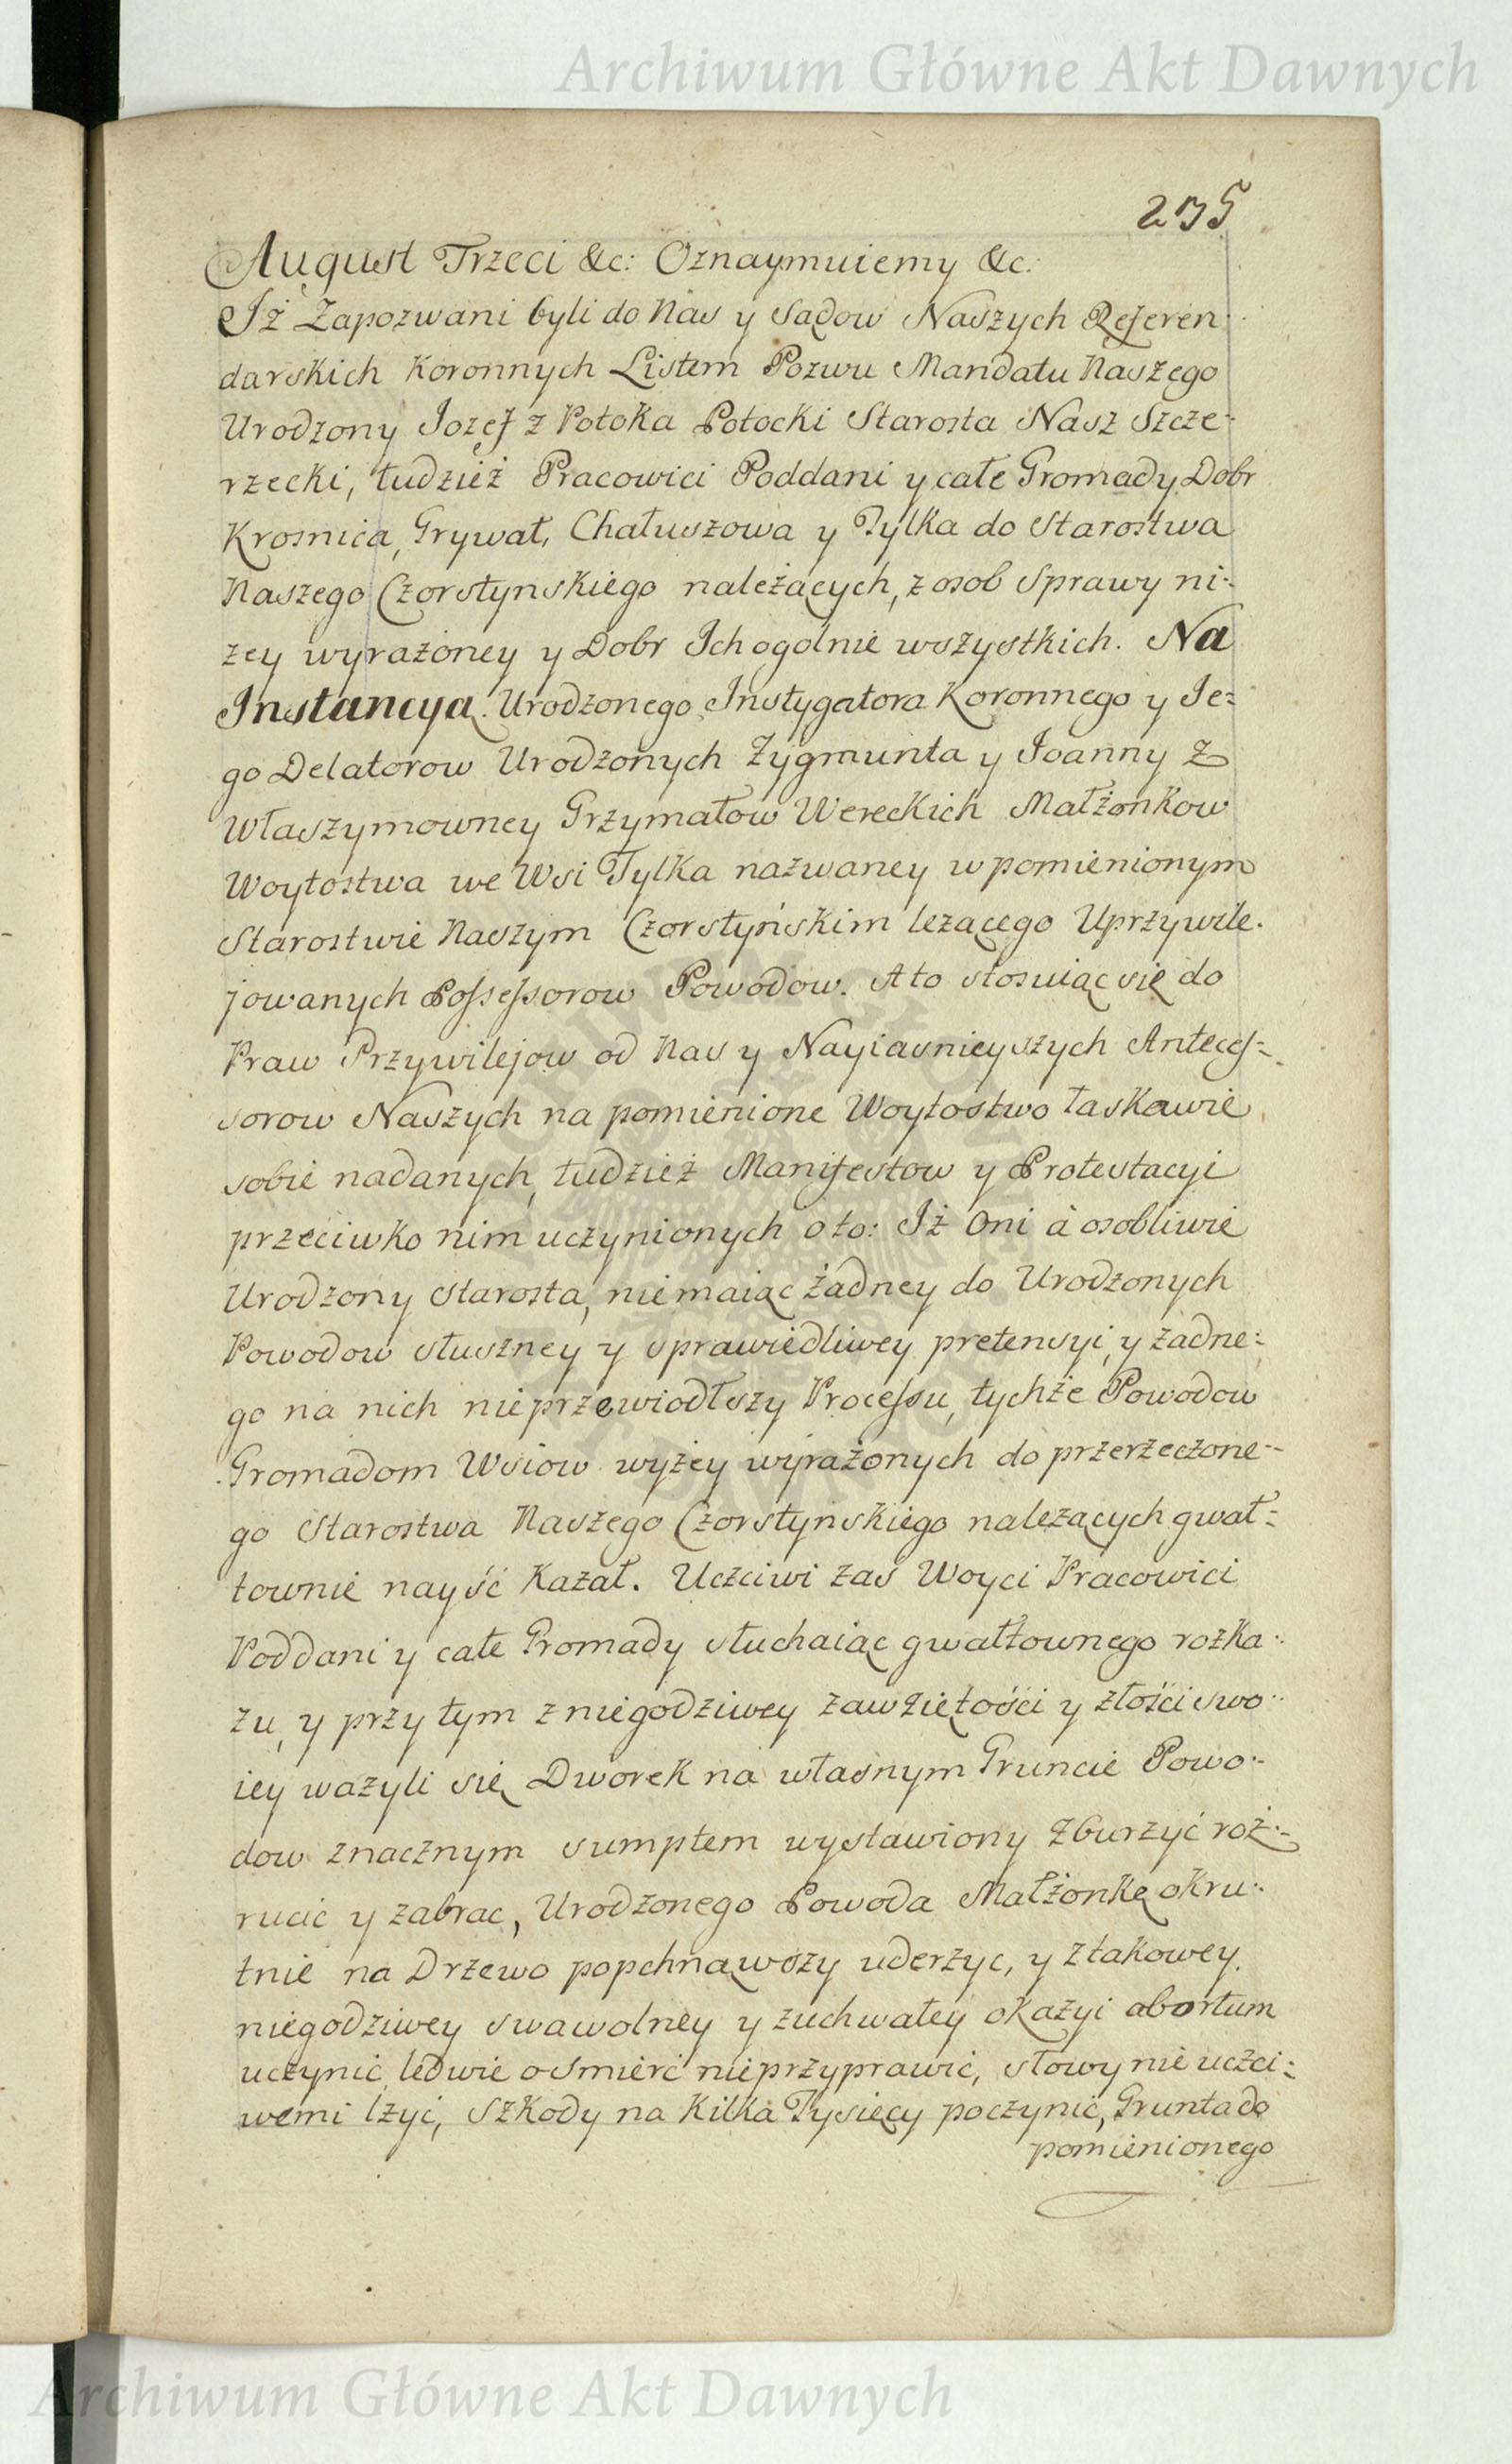 Archiwum Główne Akt Dawnych
235
August Trzeci &c: Oznaymuiemy &c:
Jż Zapozwani byli do Nas y Sądow Naszych Referen-
darskich Koronnych Listem Pozwu Mandatu Naszego
Urodzony Jozef z Potoka Potocki Starosta Nasz Szcze-
rzecki, tudzież Pracowici Poddani y całe Gromady Dobr
Krosnica, Grywał, Chałuszowa y Tylka do Starostwa
Naszego Czorstynskiego należących, z osob Sprawy ni-
zey wyrażoney y Dobr Jch ogolnie wszystkich. Na
Jnstancyą Urodzonego Jnstygatora Koronnego y Je-
go Delatorow Urodzonych Zygmunta y Joanny Z
Właszymowney Grzymałow Wereckich Małżonkow
Woytostwa we Wsi Tylka nazwaney w pomienionym
Starostwie Naszym Czorstyńskim lezącego Uprzywile-
jowanych Possessorow Powodow. A to stosuiąc się do
Praw Przywilejow od Nas y Nayiasnieyszych Anteces-
sorow Naszych na pomienione Woytostwo łaskawie
sobie nadanych, tudzież Manifestow y Protestacyi
przeciwko nim uczynionych o to: Jż Oni à osobliwie
Urodzony Starosta, niemaiąc żadney do Urodzonych
Powodow słuszney y sprawiedliwey pretensyi, y żadne-
go na nich nieprzewiodłszy Processu, tychże Powodow
Gromadom Wsiow wyżey wyrażonych do przerzeczone-
go Starostwa Naszego Czorstynskiego nalezących gwał-
townie nayść Kazał. Uczciwi zas Woyci Pracowici
Poddani y całe Gromady słuchaiąc gwałtownego rozka-
zu, y przy tym z niegodziwey zawziętości y złości swo-
iey wazyli się Dworek na własnym Gruncie Powo-
dow znacznym sumptem wystawiony zburzyć roz-
rucic y zabrac, Urodzonego Powoda Małżonkę okru-
tnie na Drzewo popchnąwszy uderzyc, y z takowey
niegodziwey swawolney y zuchwałey okazyi abortum
uczynić, ledwie o smierć nieprzyprawić, słowy nie uczci-
wemi lzyć, szkody na Kilka Tysięcy poczynić, Grunta do
pomienionego
Archiwum Główne Akt Dawnych